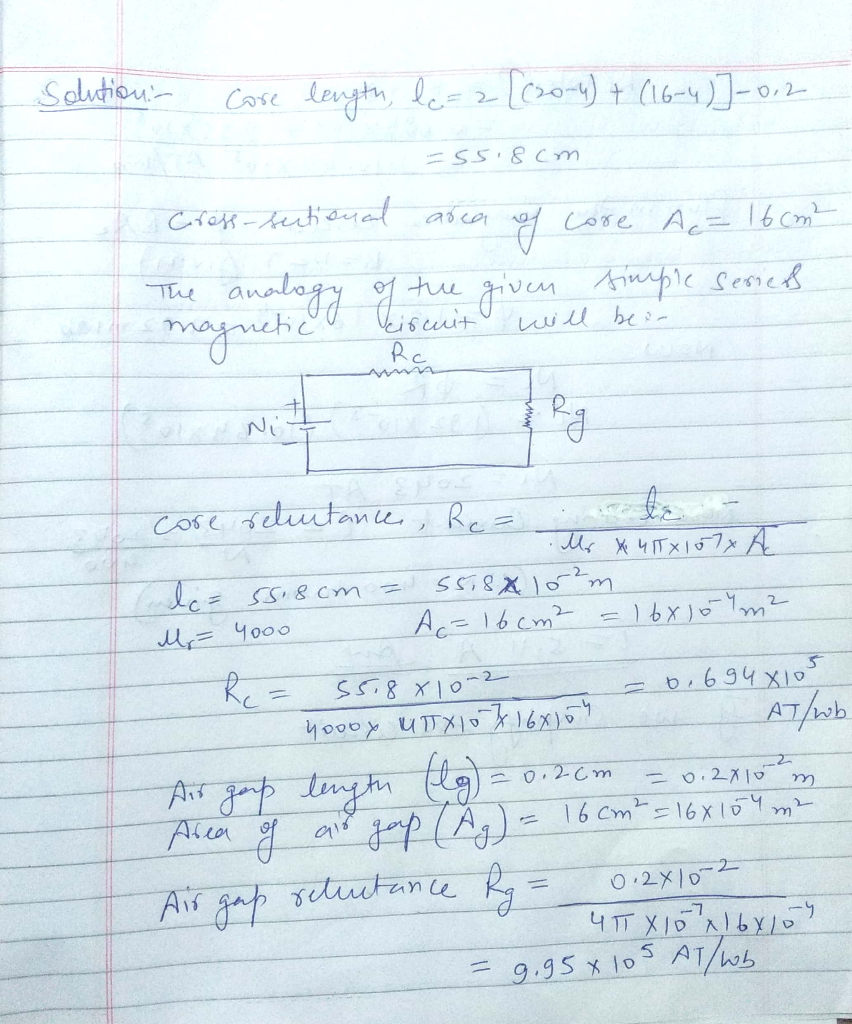 Solution:- Core length, lc = 2 [(20-4) + (16-4)] - 0.2
= 55.8 cm
Cross-sectional area of core Ac = 16 cm²
The analogy of the given simple series
magnetic circuit will be:-
Rc
+
Ni
-
Rg
Core reluctance, Rc = lc / μr × 4π×10⁻⁷× Ac
lc = 55.8 cm = 55.8 × 10⁻² m
μr = 4000 Ac = 16 cm² = 16×10⁻⁴ m²
Rc = 55.8 × 10⁻² / 4000 × 4π×10⁻⁷×16×10⁻⁴ = 0.694 ×10⁵
AT/wb
Air gap length (lg) = 0.2 cm = 0.2×10⁻² m
Area of air gap (Ag) = 16 cm² = 16×10⁻⁴ m²
Air gap reluctance Rg = 0.2×10⁻² / 4π ×10⁻⁷×16×10⁻⁴
= 9.95 × 10⁵ AT/wb